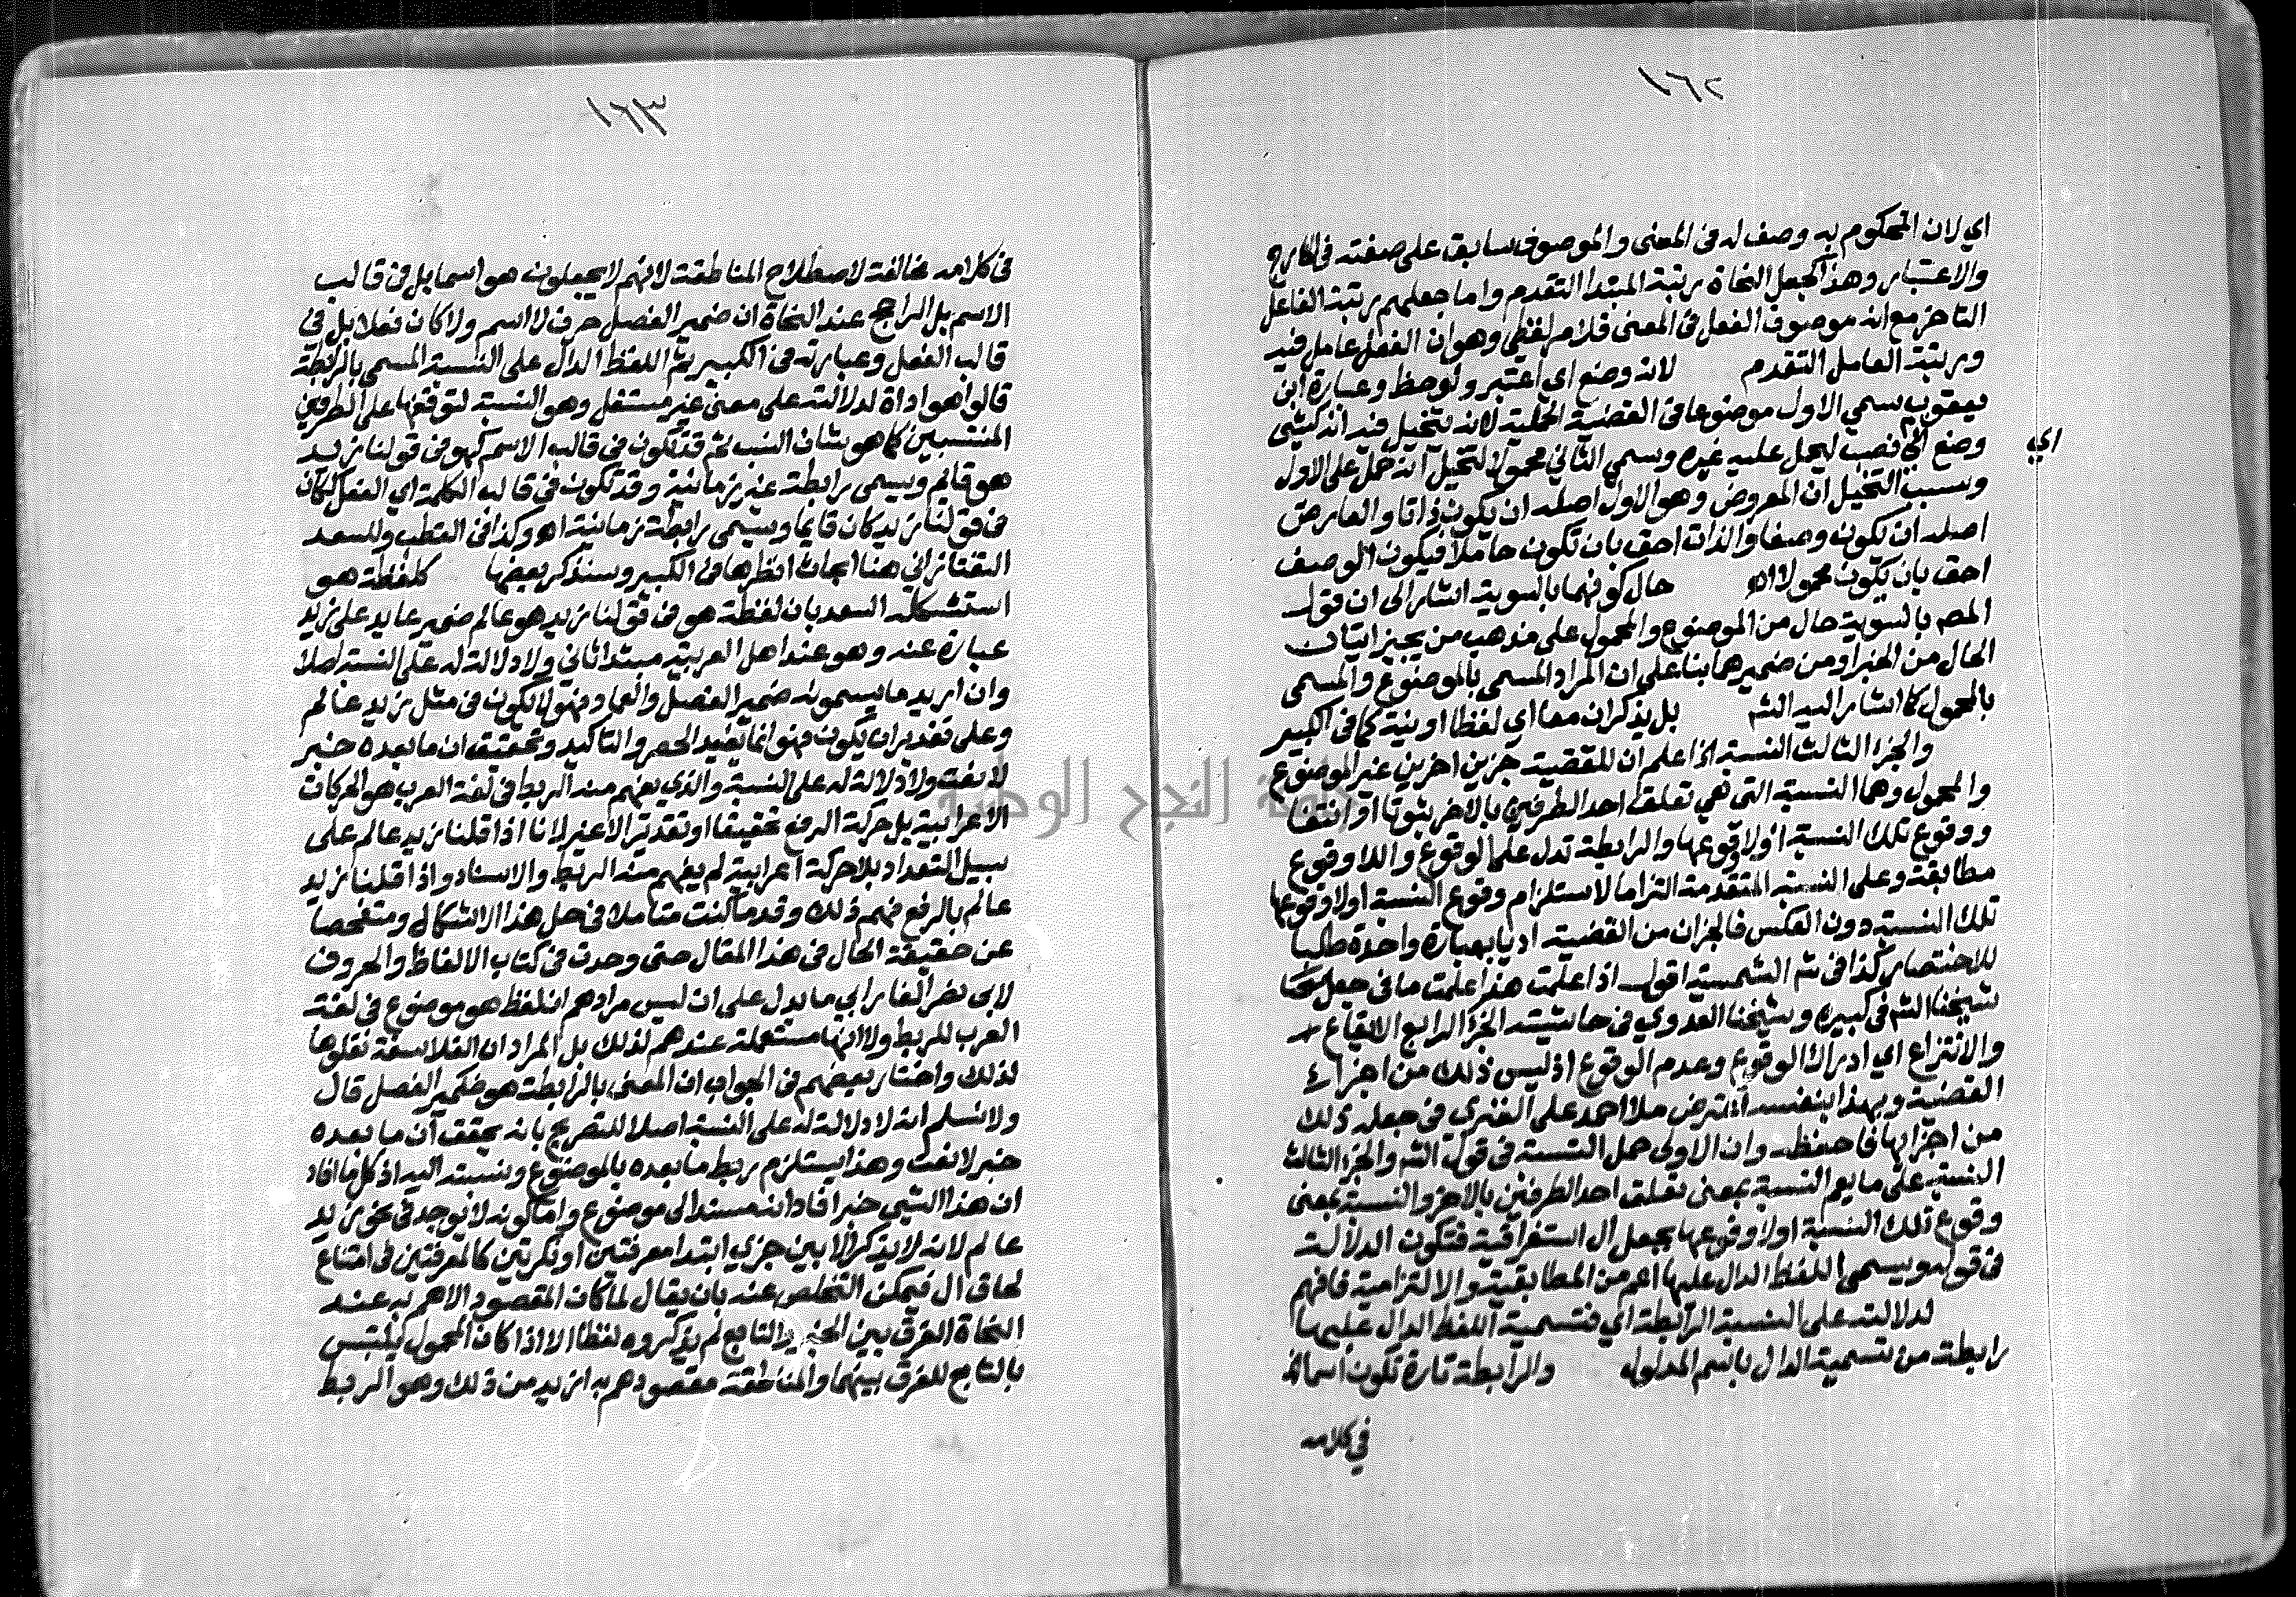 ١٦٢
اي لان المحكوم به وصف له في المعنى والموصوف سابق على صفته في الخارج
والاعتبار وهذا لجعل النحاة رتبة المبتدا التقدم واما جعلهم رتبة الفاعل
التاخر مع انه موصوف الفعل في المعنى فلامر لفظي وهو ان الفعل عامل فيه
ورتبة العامل التقدم لانه وضع اي اعتبر ولوحظ وعبارة ابن
يعقوب سمي الاول موضوعا في القضية الحملية لانه يتخيل فيه انه كشي
اي
وضع اي نصب ليحمل عليه غيره وسمي الثاني محمولا لتخيل انه حمل على الاول
وسبب التخيل ان المعروض وهو الاول اصله ان يكون ذاتا والعارض
اصله ان يكون وصفا والذات احق بان تكون حاملا فيكون الوصف
احق بان يكون محمولا اه حال كونهما بالسوية اشار الى ان قول
المصم بالسوية حال من الموضوع والمحمول على مذهب من يجيز اتيان
الحال من الخبر او من ضميرهما بناء على ان المراد المسمى بالموضوع والمسمى
بالمحمول كما اشار اليه الشم بل يذكران معا اي لفظا او نية كما في الكبير
والجزء الثالث النسبة اذا علم ان للقضية جزين اخرين غير الموضوع
والمحمول وهما النسبة التي هي تعلق احد الطرفين بالاخر ثبوتا او انتفا
ووقوع تلك النسبة اولا وقوعها والرابطة تدل على الوقوع واللاوقوع
مطابقة وعلى النسبة المتقدمة التزاما لاستلزام وقوع النسبة اولا وقوعها
تلك النسبة دون العكس فالجزان من القضية اديا بعبارة واحدة طلبا
للاختصار كذا في شم الشمسية اقول اذا علمت هذا علمت ما في جعل
شيخنا الشم في كبيره وشيخنا العدوي في حاشيته الجزء الرابع الايقاع
والانتزاع اي ادراك الوقوع وعدم الوقوع اذ ليس ذلك من اجزاء
القضية وبهذا بنفسه اعترض ملا احمد على الفنري في جعله ذلك
من اجزائها فاحفظه وان الاولى حمل النسبة في قول الشم والجزء الثالث
النسبة على ما يعم النسبة بمعنى تعلق احد الطرفين بالاخر والنسبة بمعنى
وقوع تلك النسبة اولا وقوعها بجعل ال استغراقية فتكون الدلالة
في قوله ويسمى اللفظ الدال عليها اعم من المطابقية والالتزامية فافهم
لدلالته على النسبة الرابطة اي فتسمية اللفظ الدال عليها
رابطة من تسمية الدال باسم المدلول والرابطة تارة تكون اسما الخ
في كلامه
١٦٣
في كلامه مخالفة لاصطلاح المناطقة لانهم لا يجعلون هو اسما بل في قالب
الاسم بل الراجح عند النحاة ان ضمير الفصل حرف لا اسم ولا كان فعلا بل في
قالب الفعل وعبارته في الكبير ثم اللفظ الدال على النسبة المسمى بالرابطة
قالوا هو اداة لدلالته على معنى غير مستقل وهو النسبة لتوقفها على الطرفين
المنتسبين كما هو شان النسب ثم قد تكون في قالب الاسم كهو في قولنا زيد
هو قائم ويسمى رابطة غير زمانية وقد تكون في قالب الكلمة اي الفعل ككان
في قولنا زيد كان قايما ويسمى رابطة زمانية اه وكذا في القطب وللسعد
التفتازاني هنا ابحاث انظرها في الكبير وسنذكر بعضها كلفظة هو
استشكله السعد بان لفظة هو في قولنا زيد هو عالم ضمير عايد على زيد
عبارة عنه وهو عند اهل العربية مبتدا ثاني ولا دلالة له على النسبة اصلا
وان اريد ما يسمونه ضمير الفصل والعماد فهو لا يكون في مثل زيد عالم
وعلى تقدير ان يكون فهو انما يفيد الحصر والتاكيد وتحقيق ان ما بعده خبر
لا نعت ولا دلالة له على النسبة والذي يفهم منه الربط في لغة العرب هو الحركات
الاعرابية بل حركة الرفع تحقيقا او تقديرا لا غير لانا اذا قلنا زيد عالم على
سبيل التعداد بلا حركة اعرابية لم يفهم منه الربط والاسناد واذا قلنا زيد
عالم بالرفع فهم ذلك وقدما كنت متاملا في حل هذا الاشكال ومتفحصا
عن حقيقة الحال في هذا المقال حتى وجدت في كتاب الالفاظ والحروف
لابي نصر الفارابي ما يدل على ان ليس مرادهم ان لفظ هو موضوع في لغة
العرب للربط ولا انها مستعملة عندهم لذلك بل المراد ان الفلاسفة نقلوها
لذلك واختار بعضهم في الجواب ان المعنى بالرابطة هو ضمير الفصل قال
ولا نسلم انه لا دلالة له على النسبة اصلا للتصريح بانه يحقق ان ما بعده
خبر لا نعت وهذا يستلزم ربط ما بعده بالموضوع ونسبته اليه اذ كل ما افاد
ان هذا الشي خبر افاد انه مسند الى موضوع واما كونه لا يوجد في نحو زيد
عالم لانه لا يذكر الا بين جزي ابتدا معرفتين او نكرتين كالمعرفتين في امتناع
لحاق ال فيمكن التخلص عنه بان يقال لما كان المقصود الاهم به عند
النحاة الفرق بين الخبر والتابع لم يذكروه لفظا الا اذا كان المحمول يلتبس
بالتابع للفرق بينهما والمناطقة مقصودهم به ازيد من ذلك وهو الربط
جامعة النجاح الوطنية